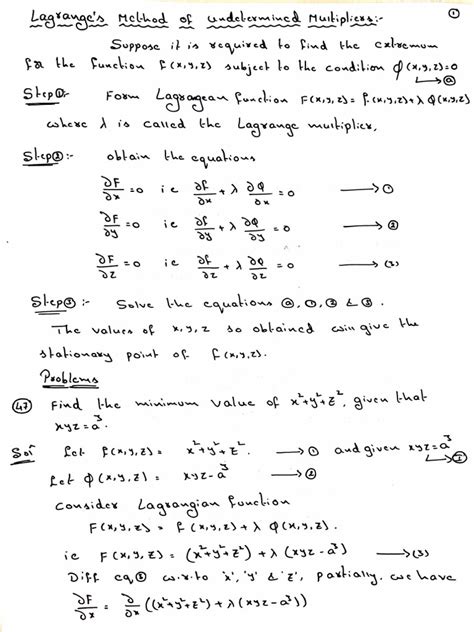 Lagrange's Method of undetermined Multipliers:- ①
Suppose it is required to find the extremum
for the function f(x,y,z) subject to the condition ϕ(x,y,z)=0
→ⓐ
Step①:- Form Lagragean function F(x,y,z) = f(x,y,z)+λ ϕ(x,y,z)
where λ is called the Lagrange multiplier.
Step②:- obtain the equations
∂F/∂x = 0 ie ∂f/∂x + λ ∂ϕ/∂x = 0 → ①
∂F/∂y = 0 ie ∂f/∂y + λ ∂ϕ/∂y = 0 → ②
∂F/∂z = 0 ie ∂f/∂z + λ ∂ϕ/∂z = 0 → (3)
Step③:- Solve the equations ⓐ, ①, ② & ③.
The values of x, y, z so obtained will give the
stationary point of f(x,y,z).
Problems
㊼ Find the minimum value of x²+y²+z², given that
xyz = a³.
Sol Let f(x,y,z) = x²+y²+z². → ① and given xyz = a³
→Ⓘ
Let ϕ(x,y,z) = xyz - a³ → ②
Consider Lagrangian function
F(x,y,z) = f(x,y,z) + λ ϕ(x,y,z).
ie F(x,y,z) = (x²+y²+z²) + λ (xyz - a³) → (3)
Diff eq③ w.r.to 'x', 'y' & 'z', partially, we have
∂F/∂x = ∂/∂x ((x²+y²+z²) + λ(xyz - a³))